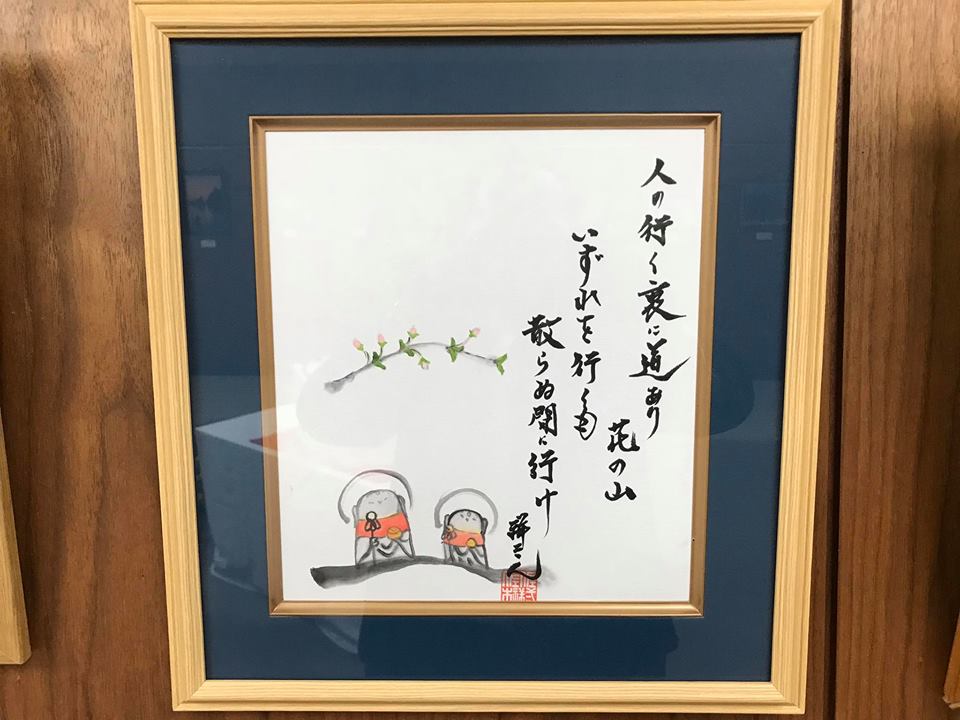 人の行く裏に道あり
花の山
いずれを行くも
散らぬ間に行け